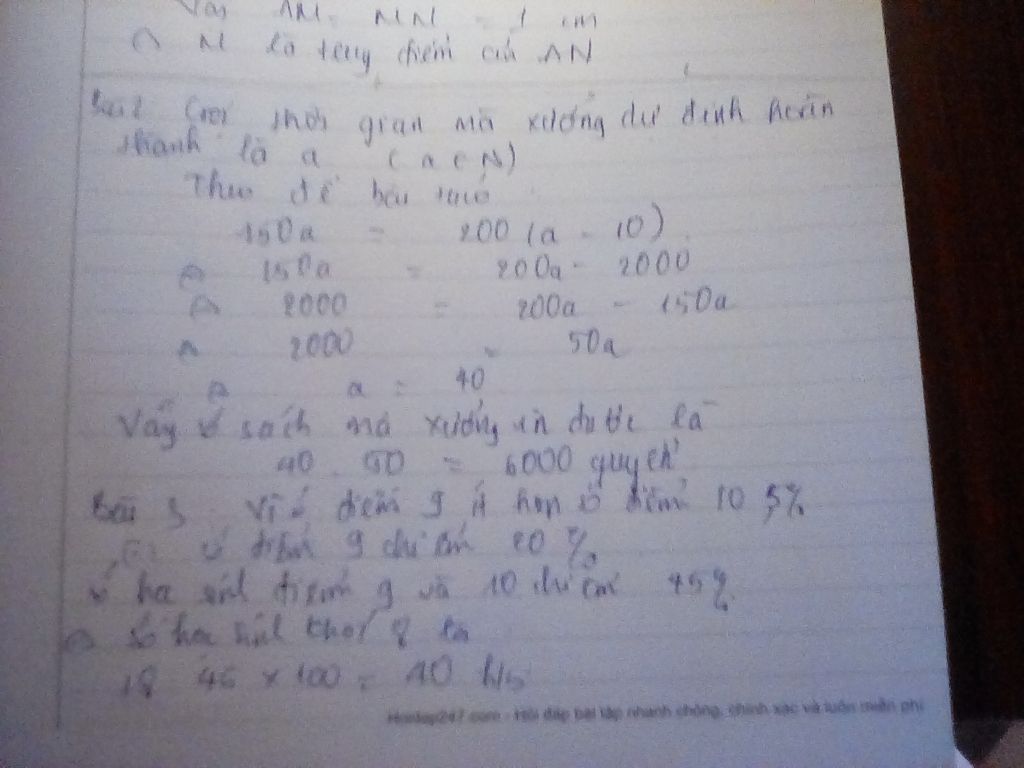 Vậy AM = MN = 1 cm
M là trung điểm của AN
Bài 2 Gọi thời gian mà xưởng dự định hoàn
thành là a (a ∈ N)
Theo đề bài
150a = 200 (a - 10)
150a = 200a - 2000
2000 = 200a - 150a
2000 = 50a
a = 40
Vậy số sách mà xưởng in được là
40 . 50 = 6000 quyển
Bài 3 Vì số điểm 9 ít hơn số điểm 10 5%
số điểm 9 chiếm 20 %
số học sinh điểm 9 và 10 chiếm 45%
số học sinh khối là
18 45 x 100 = 40 h/s
Hoidap247.com - Hỏi đáp bài tập nhanh chóng, chính xác và luôn miễn phí